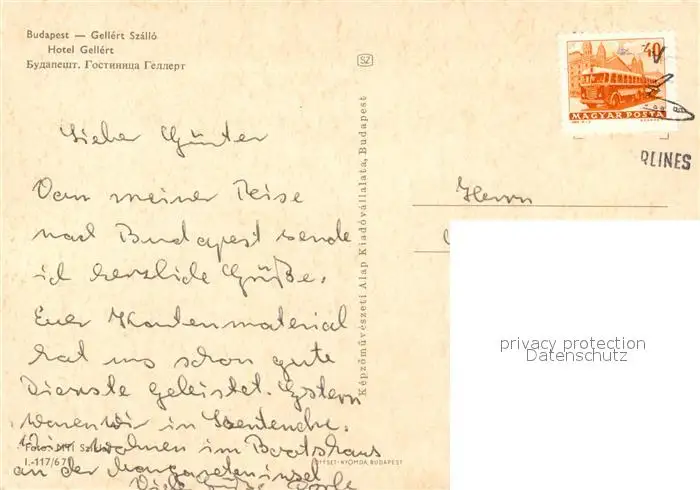 Budapest — Gellért Szálló
Hotel Gellért
Будапешт. Гостиница Геллерт
SZ
40
MAGYAR POSTA
RLINES
Képzőművészeti Alap Kiadóvállalata, Budapest
Lieber Günter
Von meiner Reise
nach Budapest sende
ich herzliche Grüße.
Euer Kartenmaterial
hat uns schon gute
Dienste geleistet. Gestern
waren wir in Szentendre.
Wir wohnen im Bootshaus
an der Margareteninsel
Viele Grüße
Herrn
privacy protection
Datenschutz
Foto: MTI
I.-117/671
OFFSET-NYOMDA, BUDAPEST